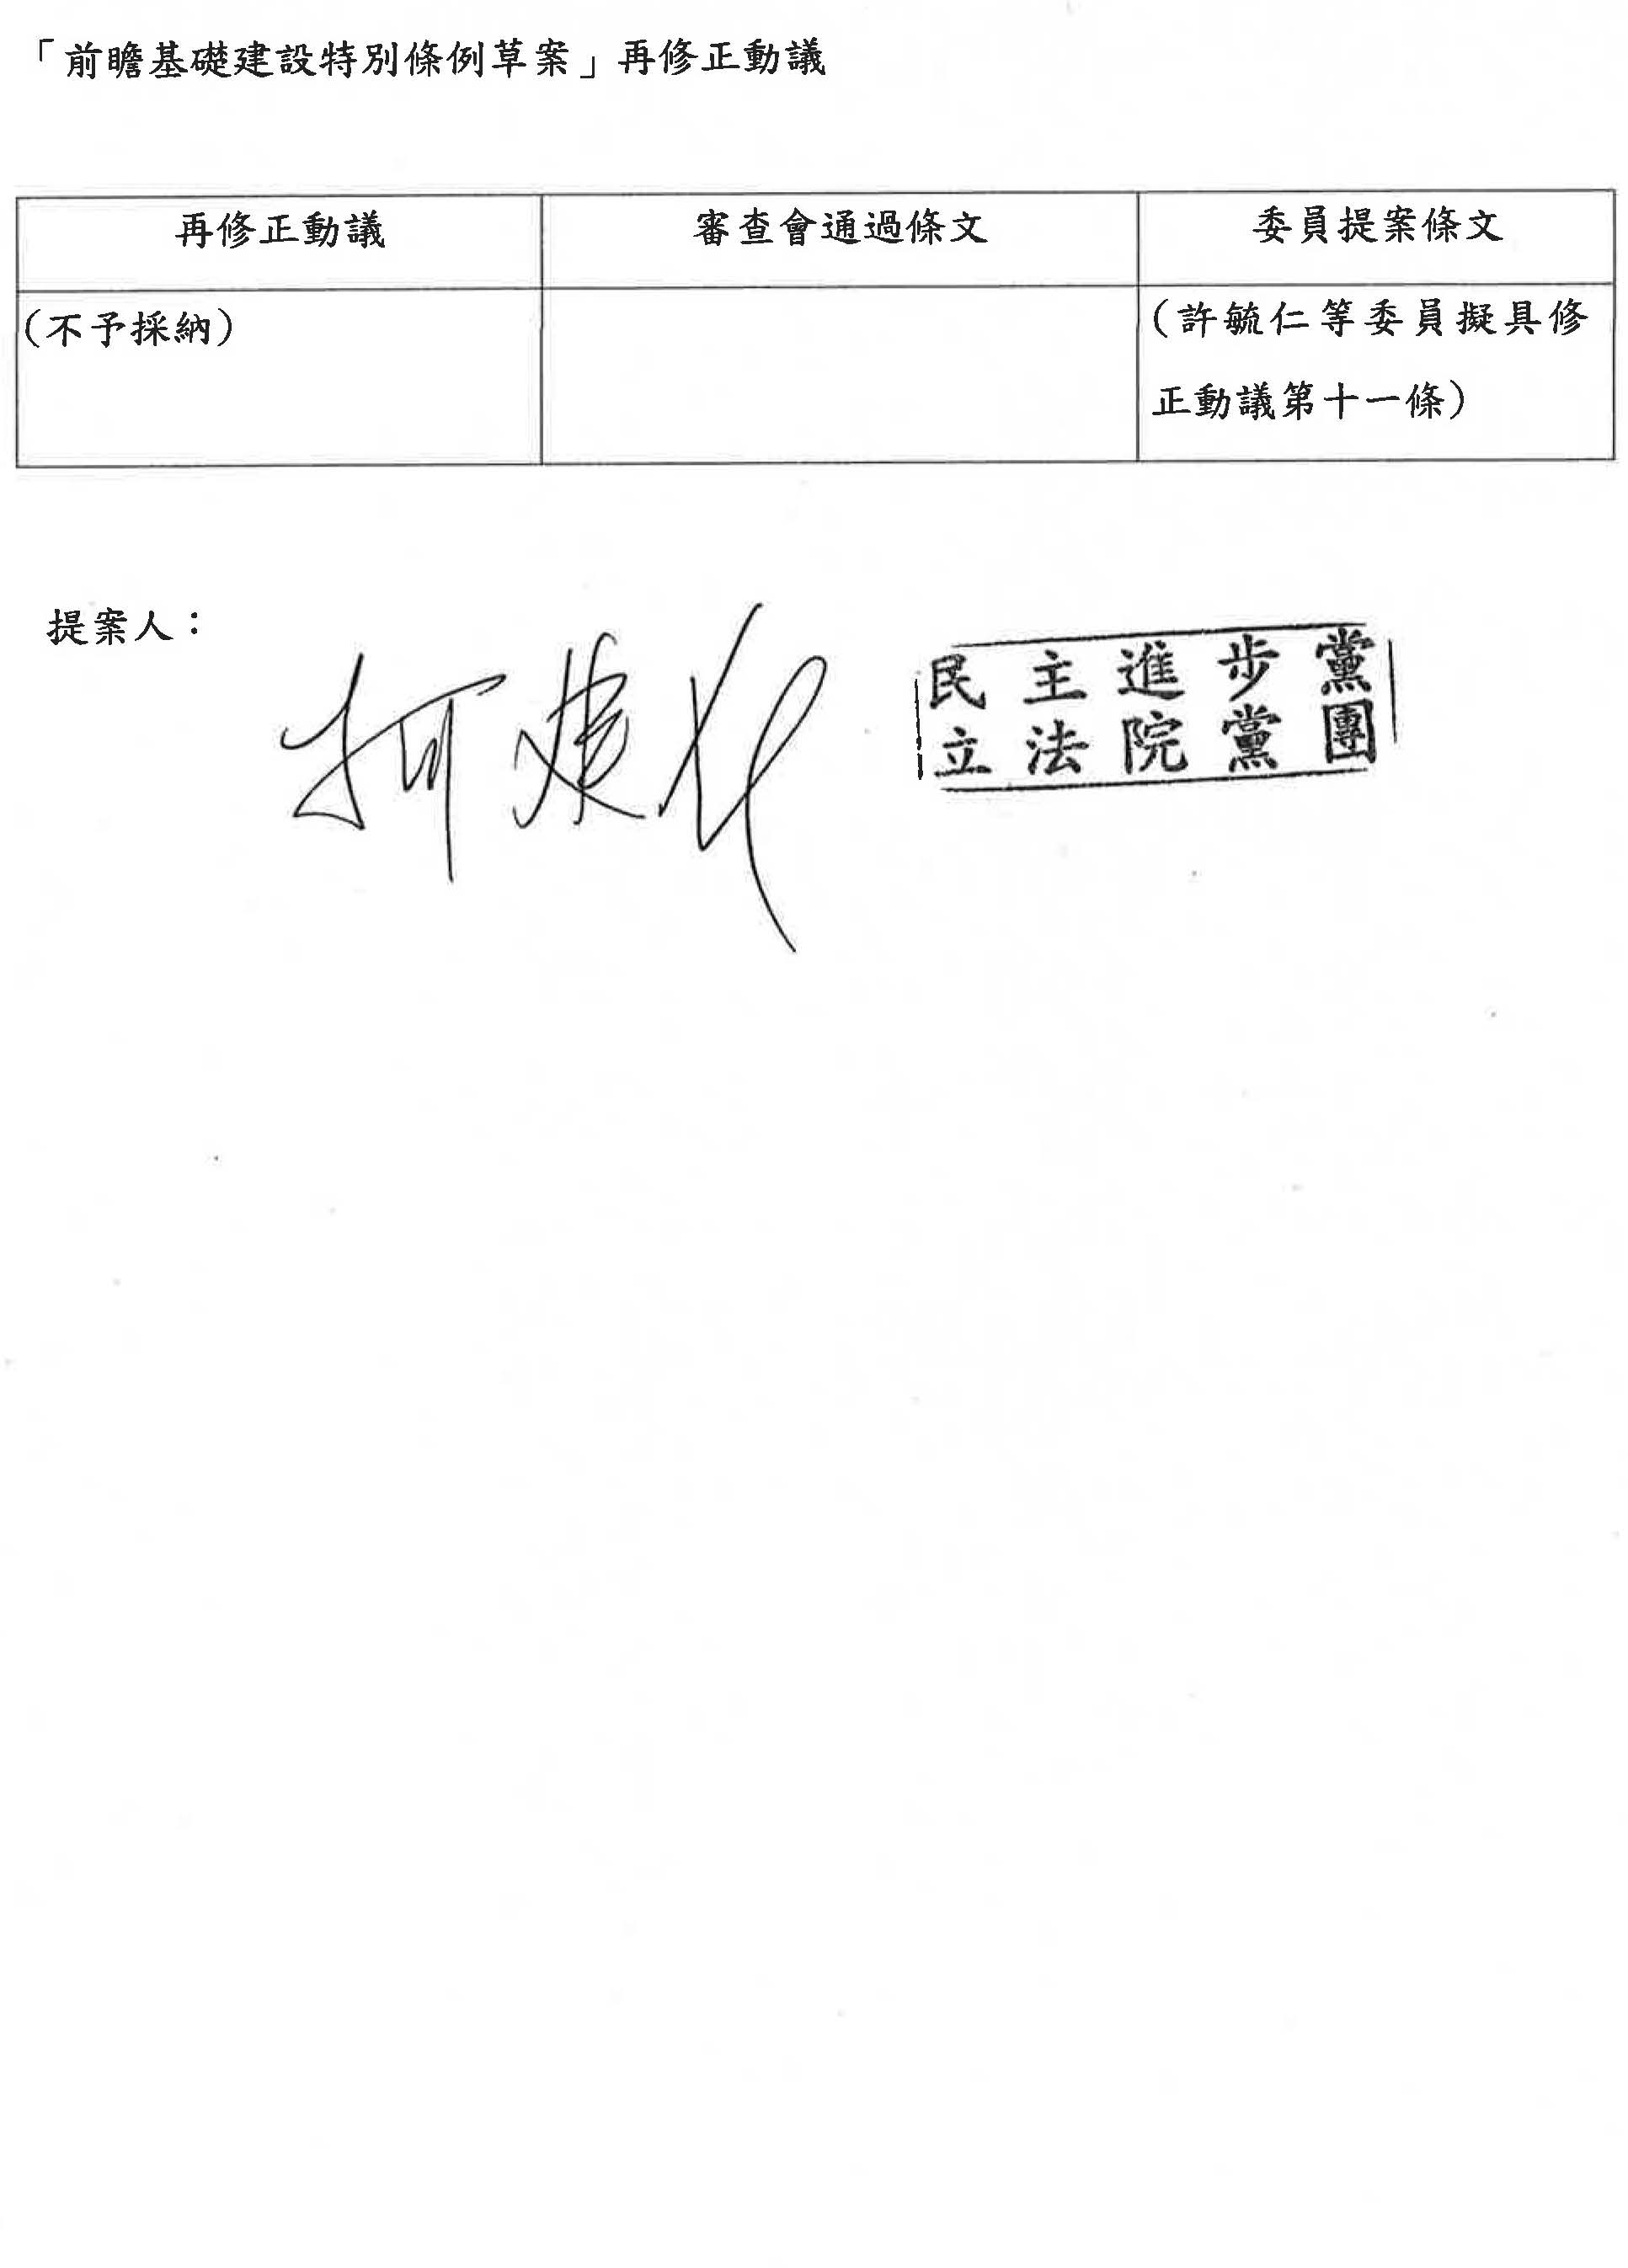 「前瞻基礎建設特別條例草案」再修正動議
再修正動議
審查會通過條文
委員提案條文
(不予採納)
(許毓仁等委員擬具修
正動議第十一條)
提案人：
柯建銘
民主進步黨
立法院黨團